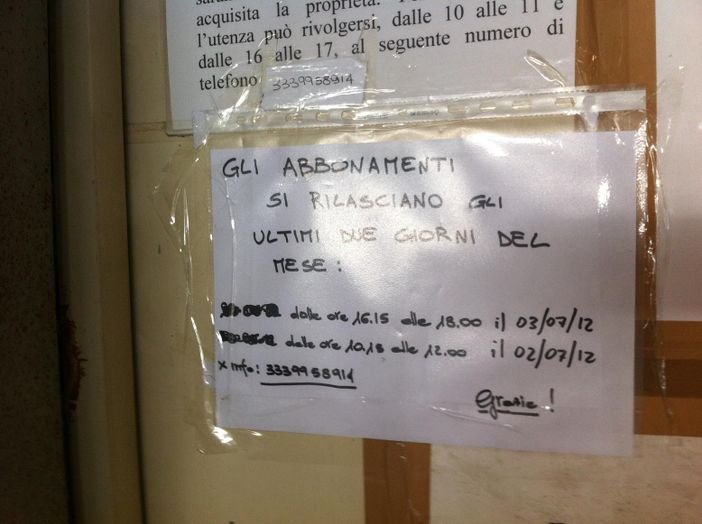 acquisita la proprietà.
l'utenza può rivolgersi, dalle 10 alle 11 e
dalle 16 alle 17, al seguente numero di
telefono 3339958914
GLI ABBONAMENTI
SI RILASCIANO GLI
ULTIMI DUE GIORNI DEL
MESE:
dalle ore 16.15 alle 18.00 il 03/07/12
dalle ore 10,15 alle 12.00 il 02/07/12
x info: 3339958914
Grazie!